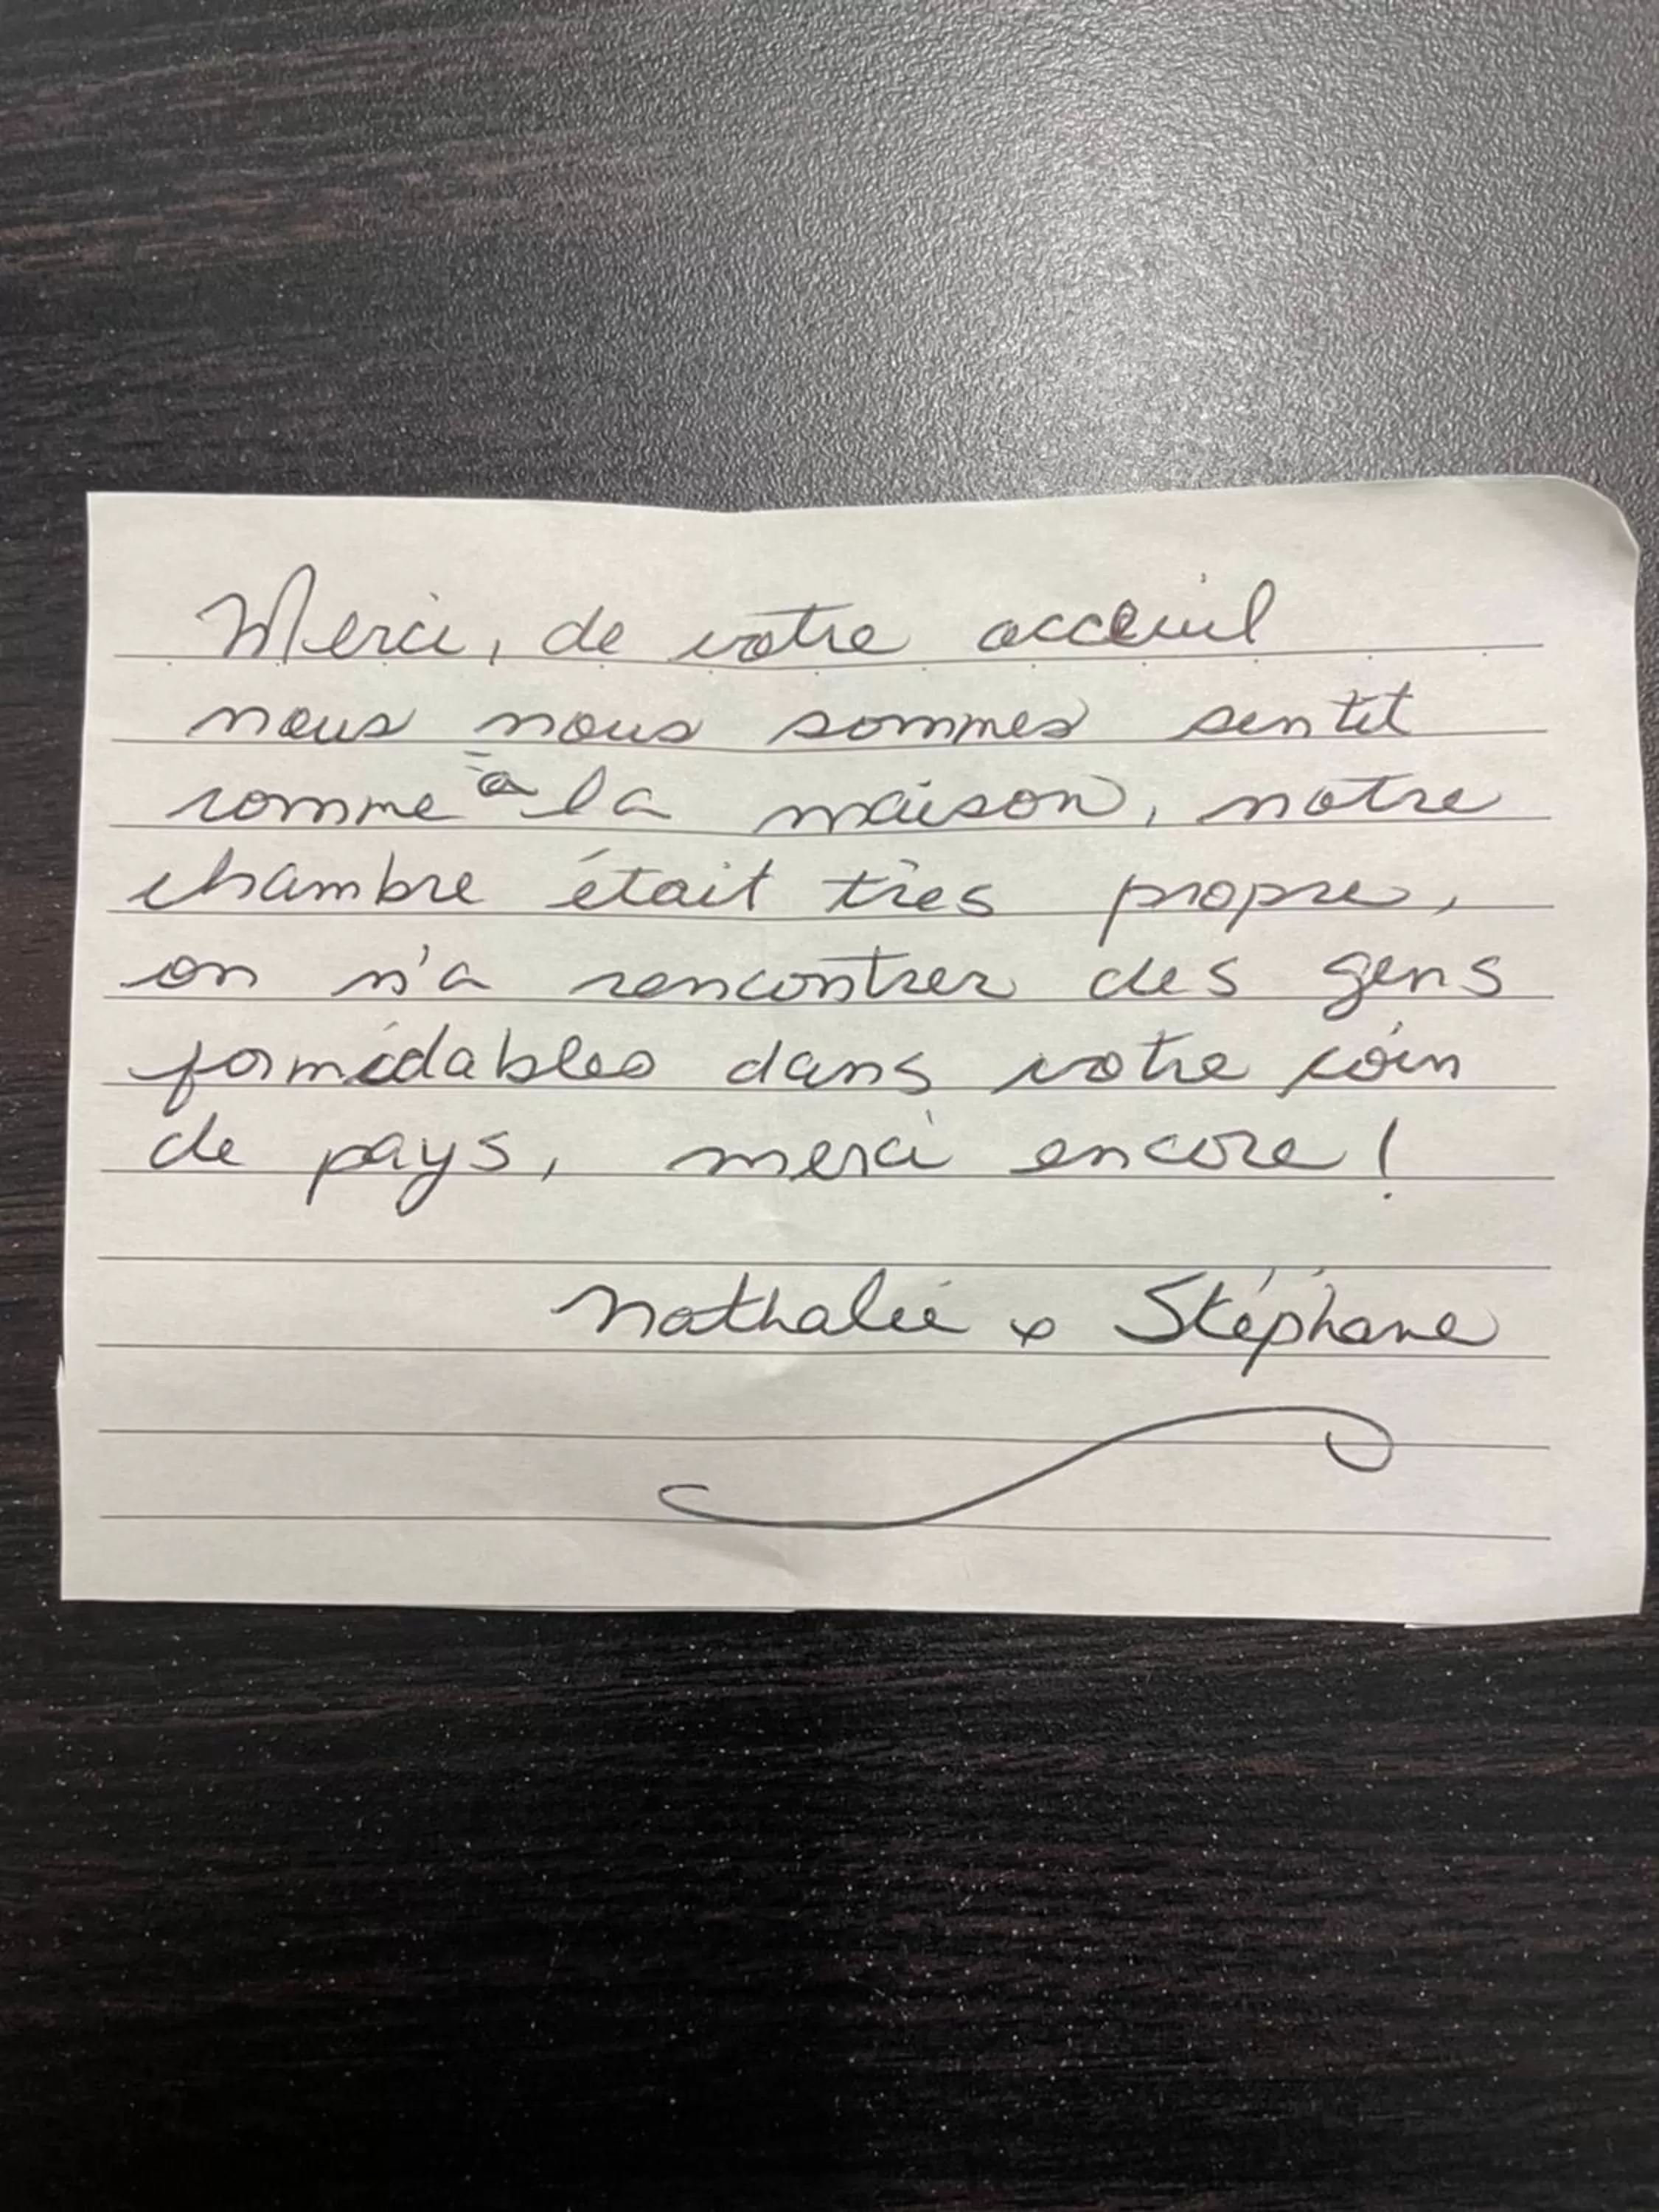 Merci, de votre acceuil
nous nous sommes sentit
comme à la maison, notre
chambre était très propre,
on n'a rencontrer des gens
formidables dans votre coin
de pays, merci encore !
Nathalie & Stéphane